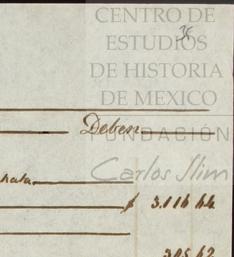 CENTRO DE
ESTUDIOS
DE HISTORIA
DE MEXICO
Deben
FUNDACIÓN
Carlos Slim
$ 3.116 44